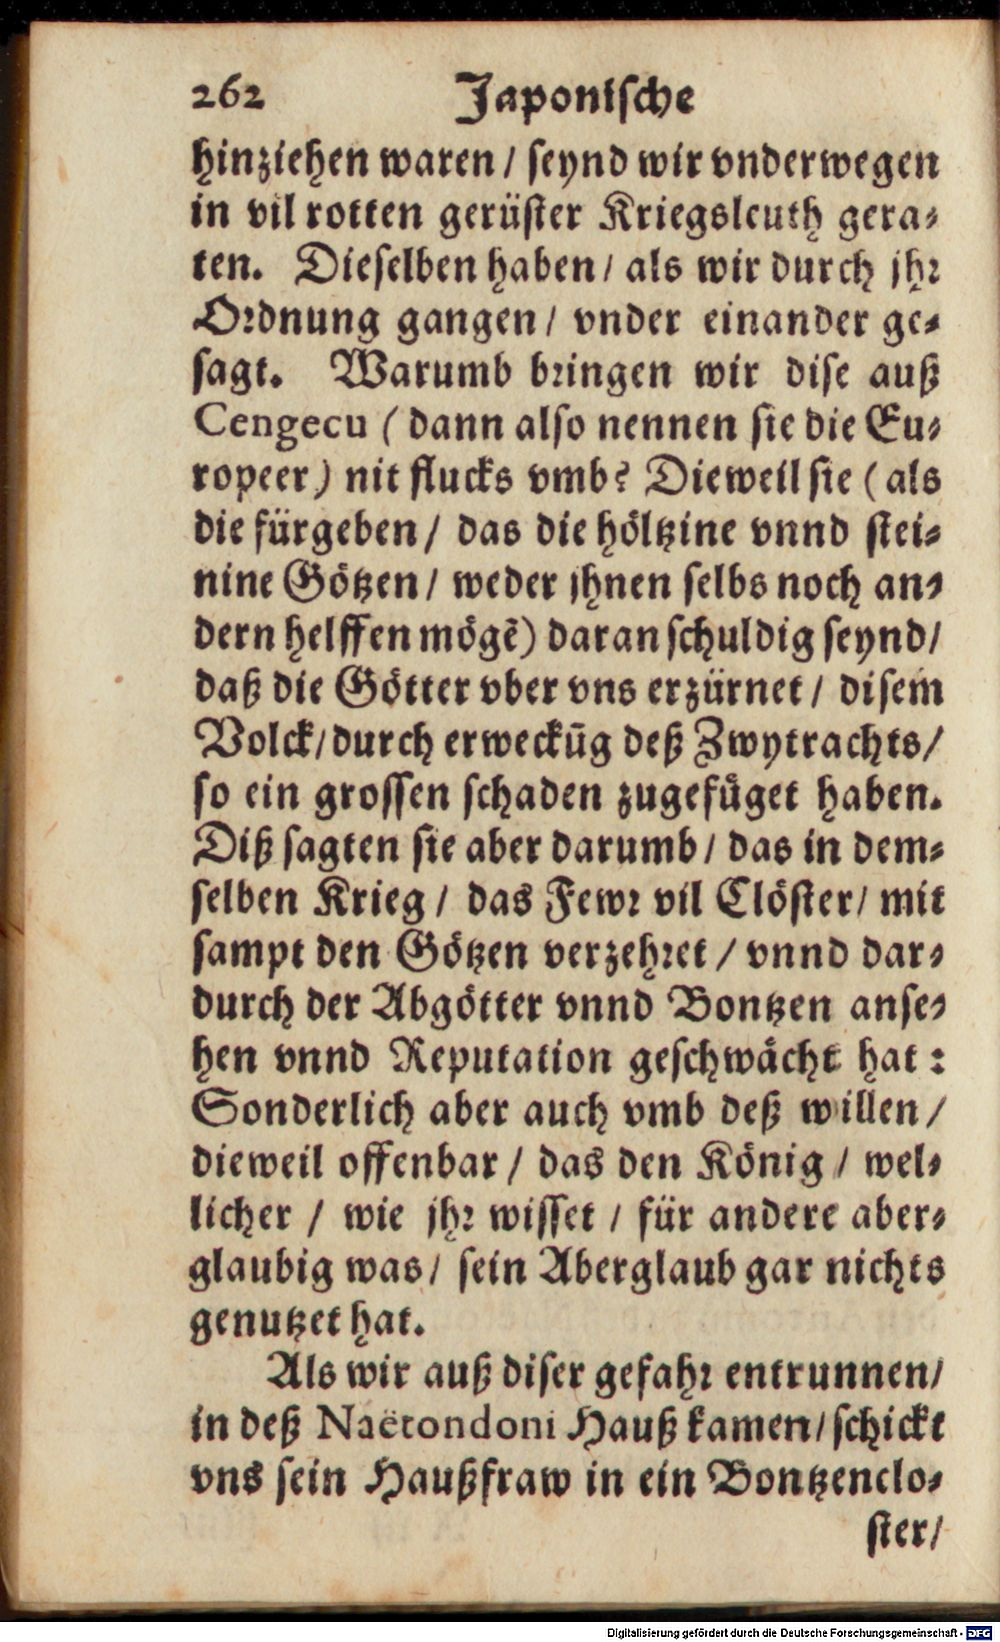 262 Japonische
hinziehen waren / seynd wir vnderwegen
in vil rotten gerüster Kriegsleuth gera⸗
ten. Dieselben haben / als wir durch jhꝛ
Oꝛdnung gangen / vnder einander ge⸗
sagt. Warumb bꝛingen wir dise auß
Cengecu ( dann also nennen sie die Eu⸗
ropeer) nit flucks vmb? Dieweil sie ( als
die fürgeben / das die höltzine vnnd stei⸗
nine Götzen / weder jhnen selbs noch an⸗
dern helffen mögẽ) daran schuldig seynd/
daß die Götter vber vns erzürnet / disem
Volck/ durch erweckũg deß Zwytrachts/
so ein grossen schaden zugefüget haben.
Diß sagten sie aber darumb / das in dem⸗
selben Krieg / das Fewꝛ vil Clöster/ mit
sampt den Götzen verzehꝛet / vnnd dar⸗
durch der Abgötter vnnd Bontzen anse⸗
hen vnnd Reputation geschwächt hat :
Sonderlich aber auch vmb deß willen /
dieweil offenbar / das den König / wel⸗
licher / wie jhꝛ wisset / für andere aber⸗
glaubig was/ sein Aberglaub gar nichts
genutzet hat.
Als wir auß diser gefahꝛ entrunnen/
in deß Naëtondoni Hauß kamen/ schickt
vns sein Haußfraw in ein Bontzenclo⸗
ster/
Digitalisierung gefördert durch die Deutsche Forschungsgemeinschaft - DFG